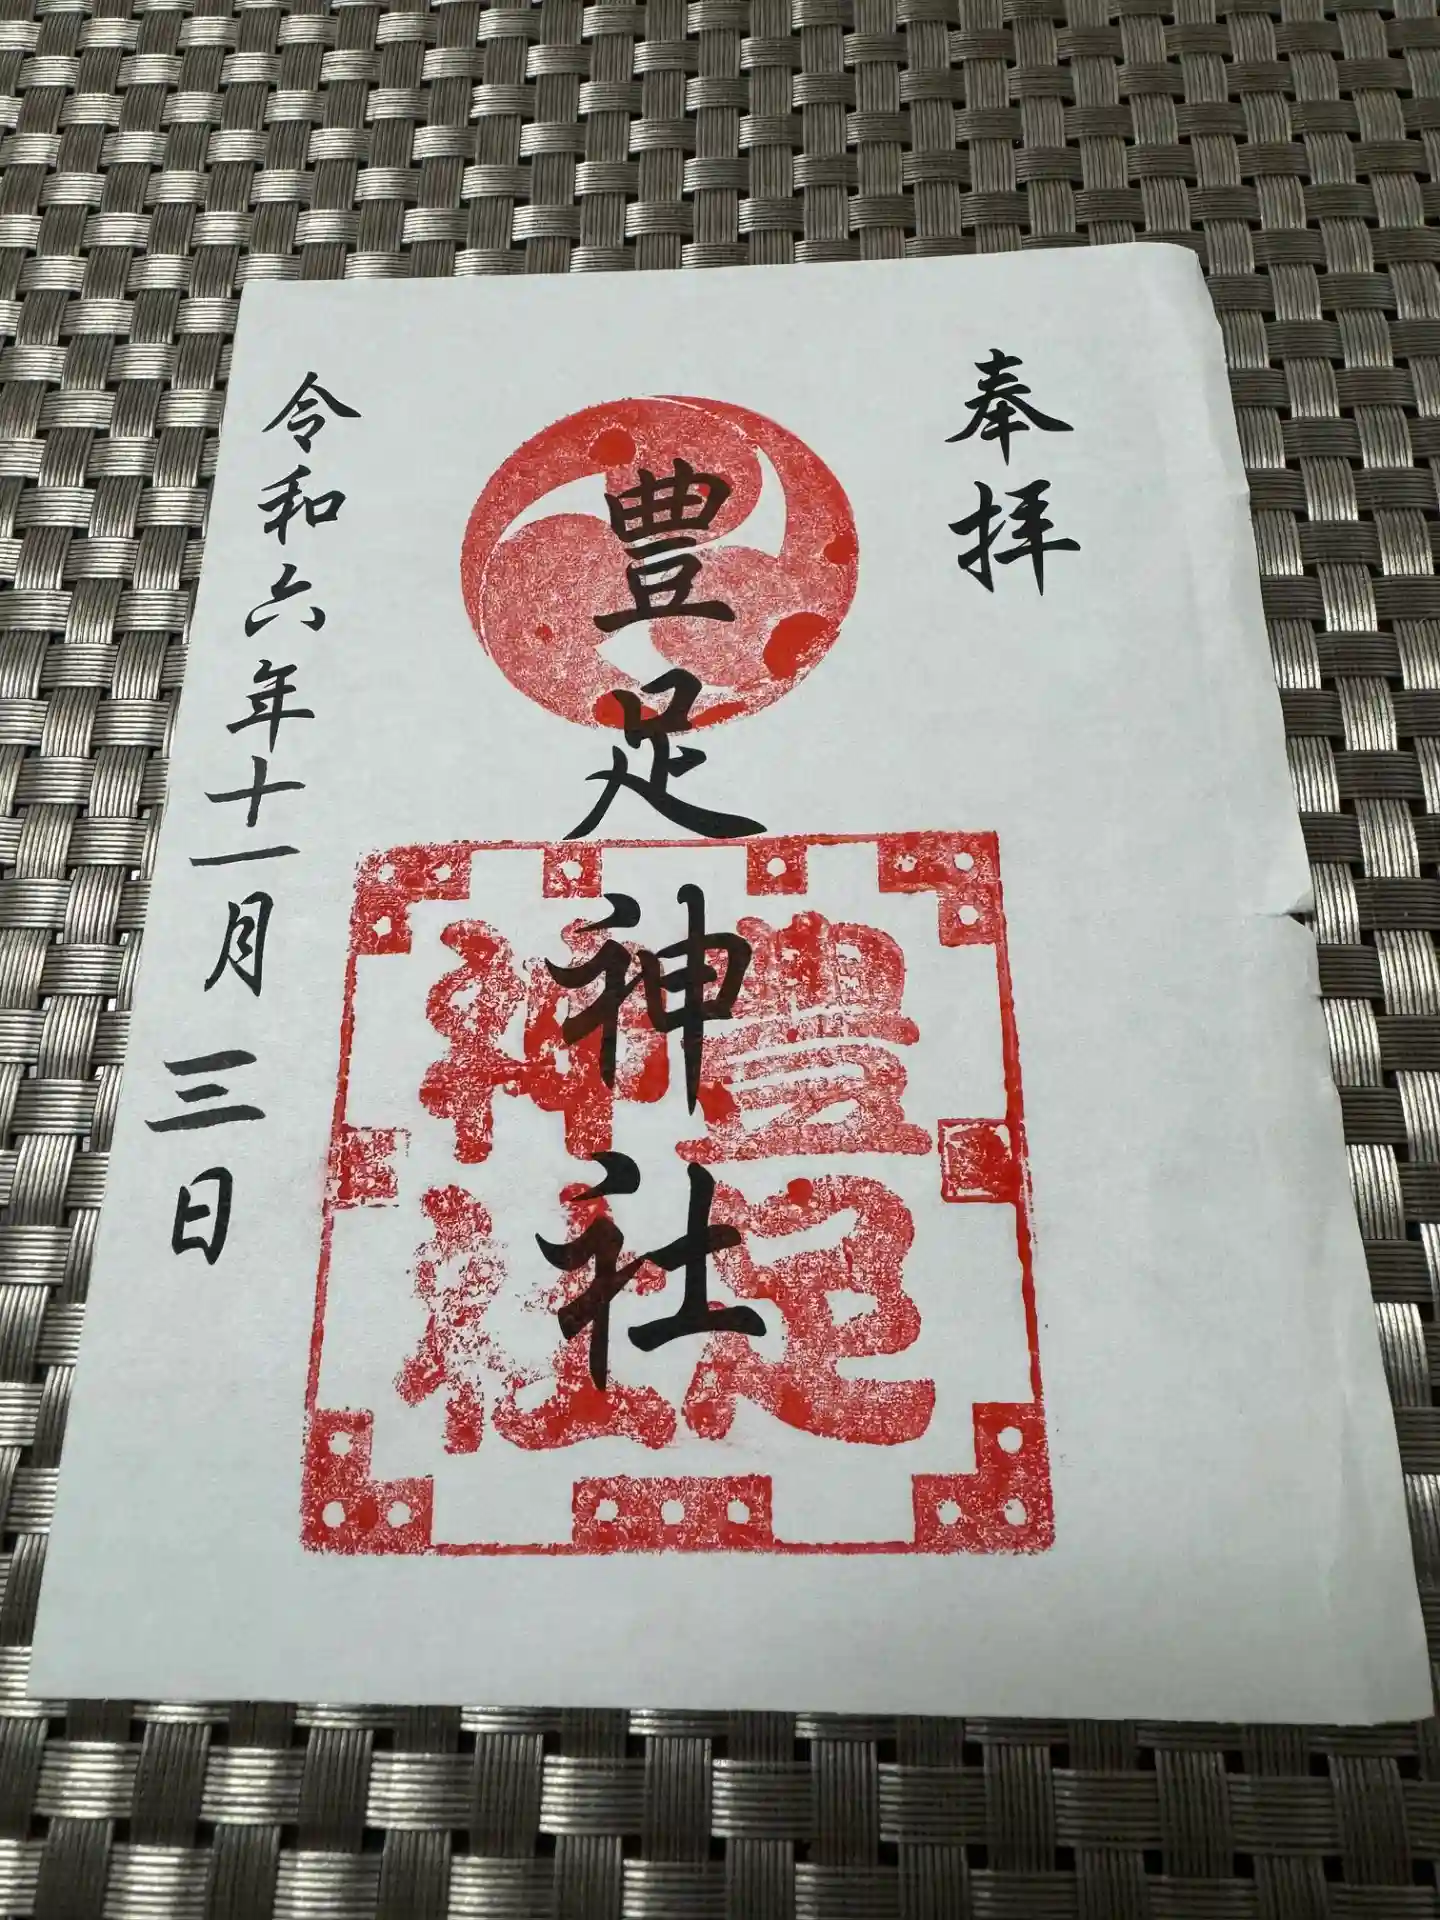 奉拝
豊足神社
豊足
神社
令和六年十一月三日